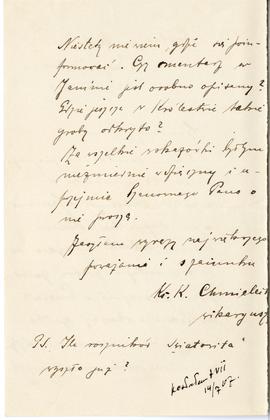 Niestety nie wiem, gdzie się poin-
formować. Czy cmentarz w
Janinie jest osobno opisany?
Gdzie jeszcze w Królestwie takie
groby odkryto?
Za wszelkie wskazówki byłbym
niezmiernie wdzięczny i u-
przejmie Szanownego Pana o
nie proszę.
Łączę wyrazy najwyższego
poważania i szacunku
Ks. K. Chmielecki
wikaryusz
PS. Ile roczników "Światowita"
wyszło już?
14/7 07.